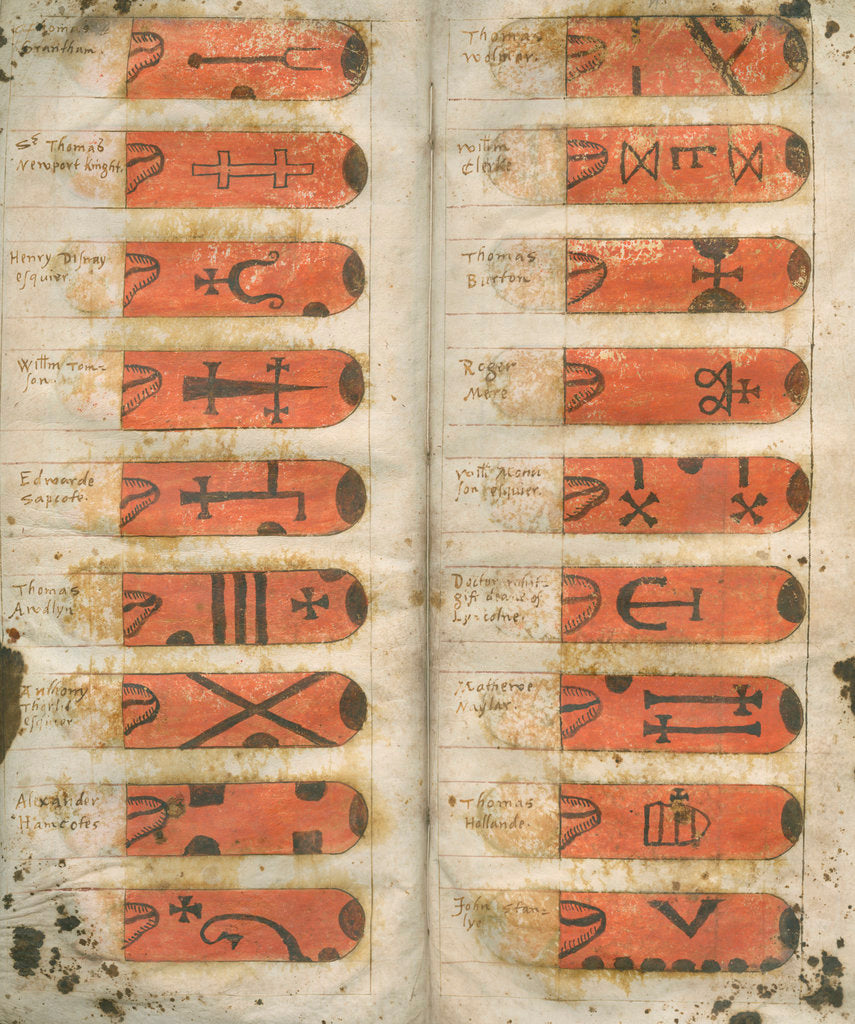 Thomas
Grantham.
Sr Thomas
Newport knight.
Henry Disnay
esquier.
Willm Tom=
son.
Edwarde
Sapcote.
Thomas
Andlyn
Anthony
Thorlde
esquier
Alexander
Hamcotes
Thomas
Wolmer.
Willm
Clerke
Thomas
Burton
Roger
Mere
Willm Moun
son esquier.
Doctor whit=
gift deane of
Lyncolne.
Mathewe
Naylar
Thomas
Hollande.
John Stan=
lye